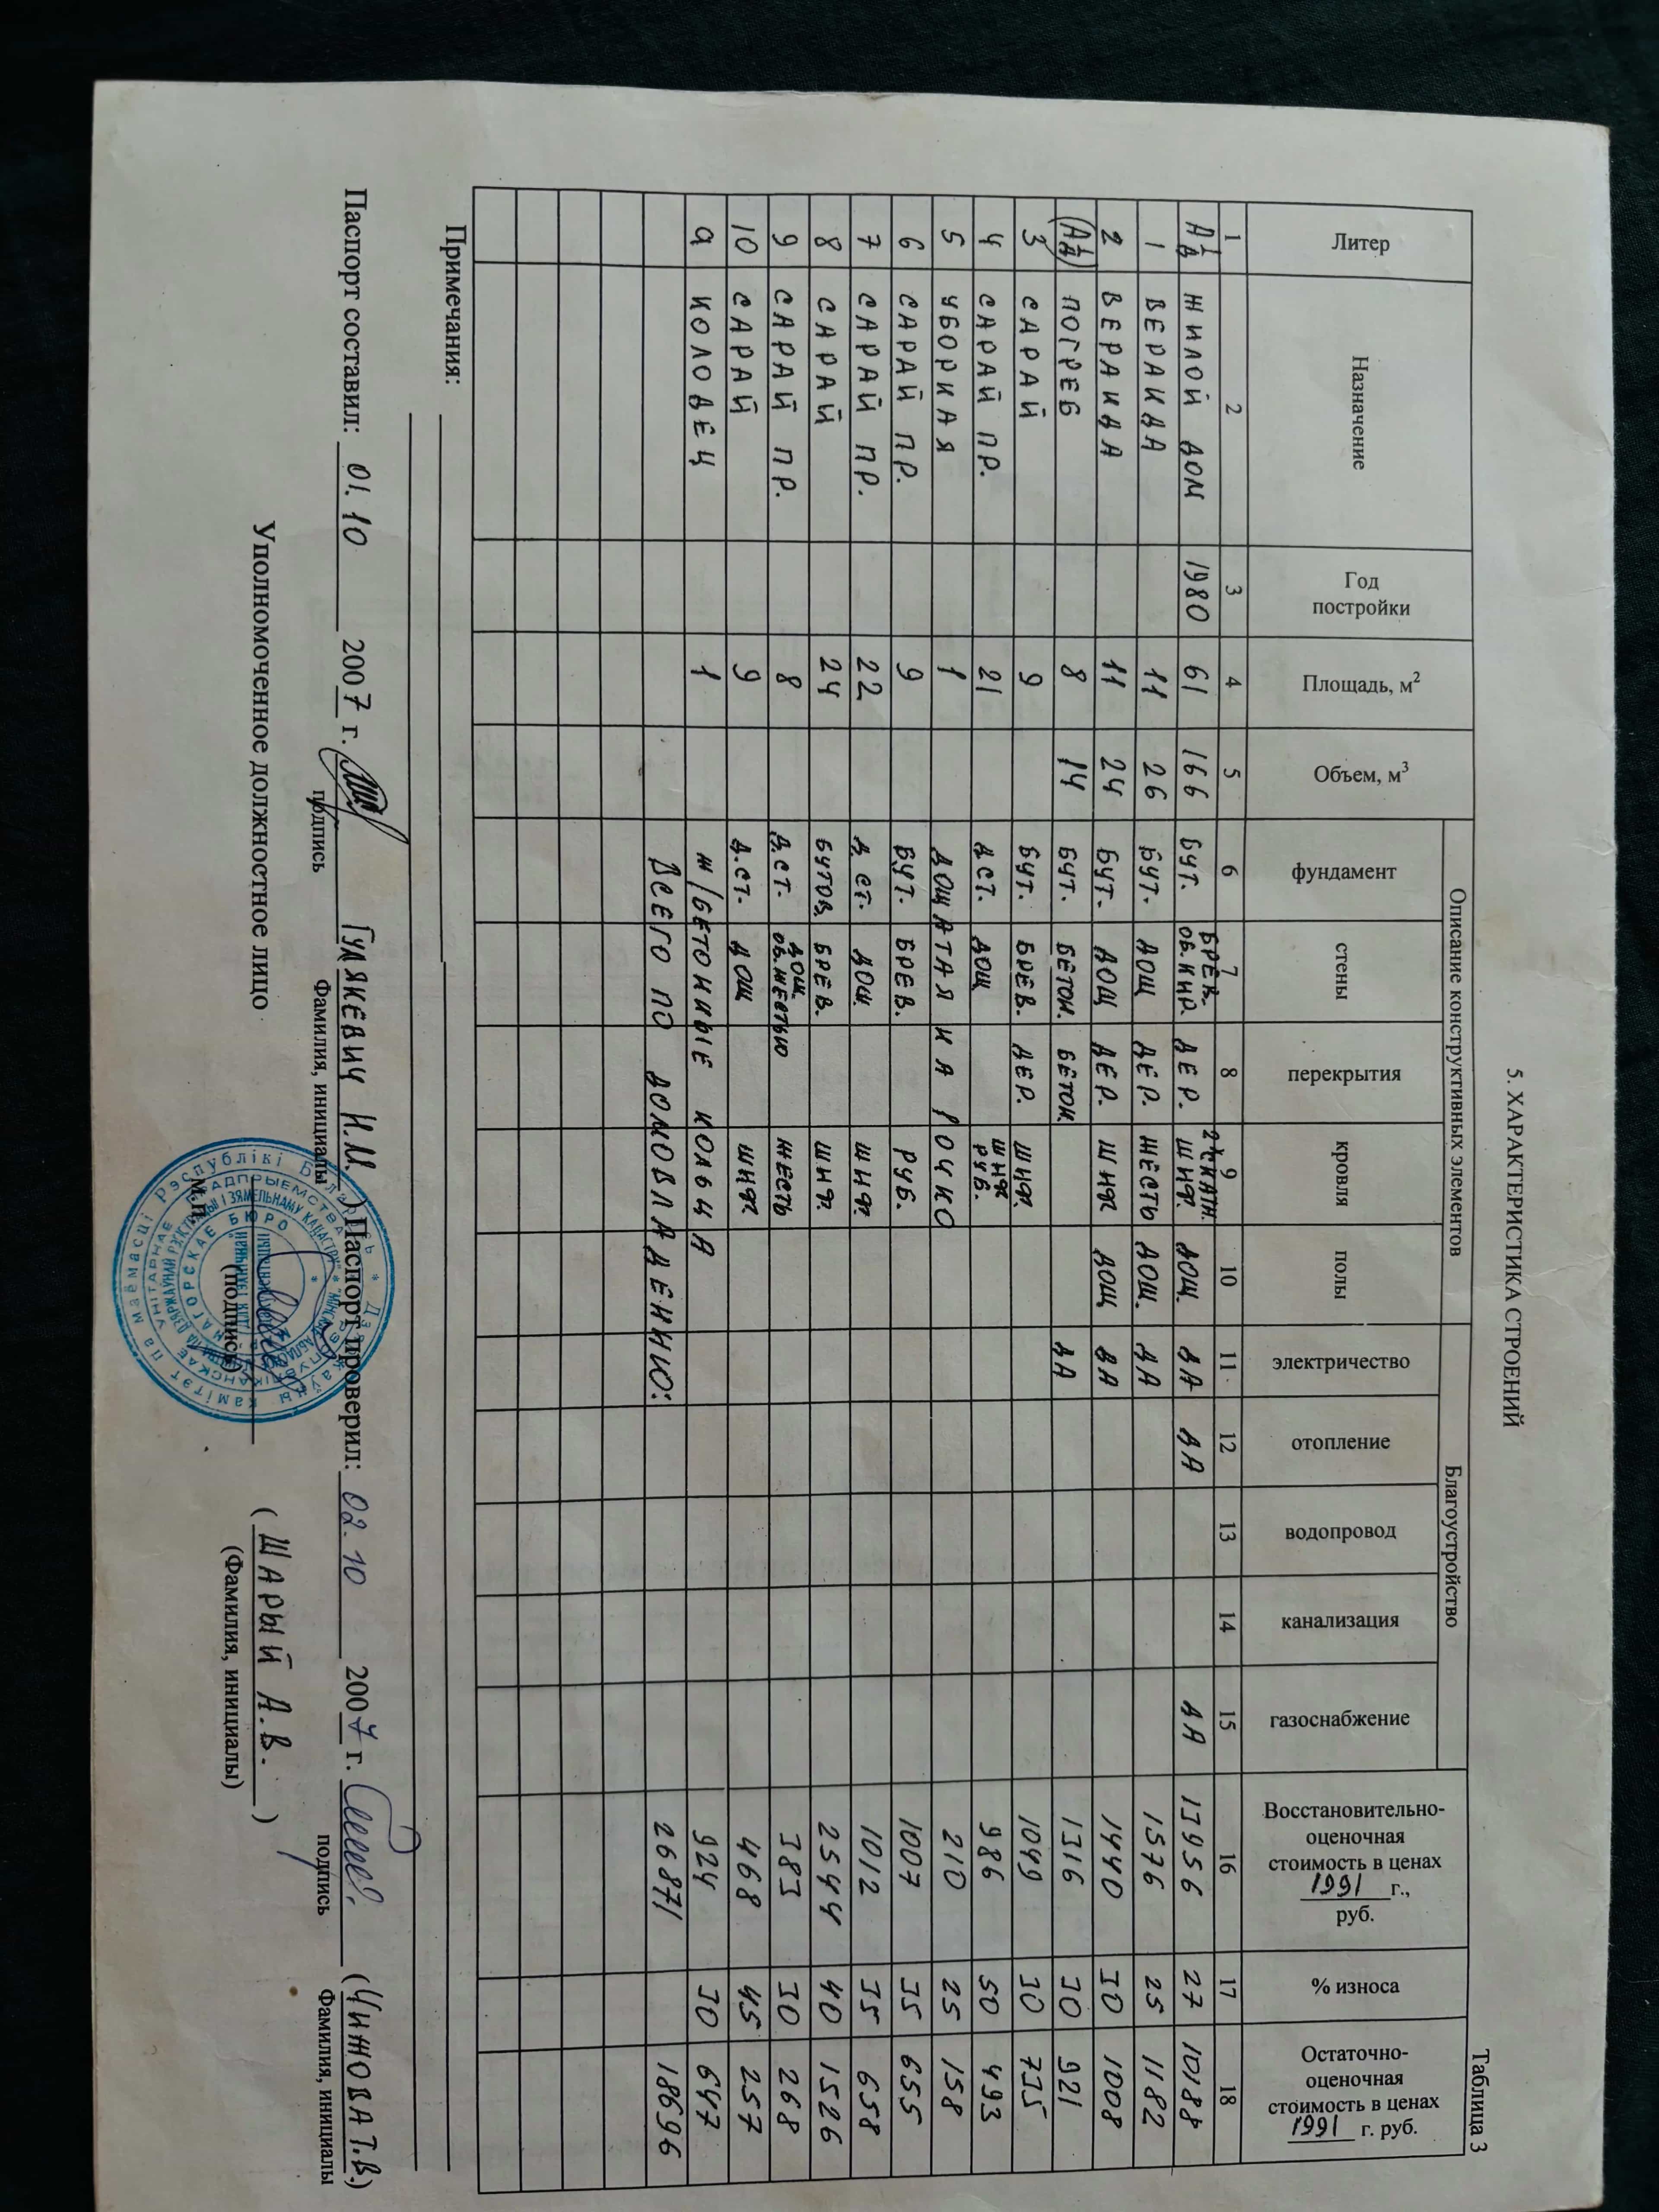 5. ХАРАКТЕРИСТИКА СТРОЕНИЙ
Таблица 3
Литер Назначение Год постройки Площадь, м² Объем, м³ Описание конструктивных элементов Благоустройство Восстановительно-оценочная стоимость в ценах 1991 г., руб. % износа Остаточно-оценочная стоимость в ценах 1991 г. руб.
фундамент стены перекрытия кровля полы электричество отопление водопровод канализация газоснабжение
1 2 3 4 5 6 7 8 9 10 11 12 13 14 15 16 17 18
А1/д ЖИЛОЙ ДОМ 1980 61 166 БУТ. БРЕВ. ОБ.КИР. ДЕР. 2хСКАТН. ШИФ. ДОЩ. ДА ДА ДА 13956 27 10188
1 ВЕРАНДА 11 26 БУТ. ДОЩ ДЕР. ЖЕСТЬ ДОЩ. ДА 1576 25 1182
2 ВЕРАНДА 11 24 БУТ. ДОЩ ДЕР. ШИФ ДОЩ ДА 1440 30 1008
(А1/д) ПОГРЕБ 8 14 БУТ. БЕТОН. БЕТОН. ДА 1316 30 921
3 САРАЙ 9 БУТ. БРЕВ. ДЕР. ШИФ. 1049 30 735
4 САРАЙ ПР. 21 Д.СТ. ДОЩ ШИФ РУБ. 986 50 493
5 УБОРНАЯ 1 ДОЩАТАЯ НА 1 ОЧКО 210 25 158
6 САРАЙ ПР. 9 БУТ. БРЕВ. РУБ. 1007 35 655
7 САРАЙ ПР. 22 Д.СТ. ДОЩ. ШИФ. 1012 35 658
8 САРАЙ 24 БУТОВ. БРЕВ. ШИФ. 2544 40 1526
9 САРАЙ ПР. 8 Д.СТ. ДОЩ. ОБ.ЖЕСТЬЮ ЖЕСТЬ 383 30 268
10 САРАЙ 9 Д.СТ. ДОЩ ШИФ. 468 45 257
а КОЛОДЕЦ 1 Ж/БЕТОННЫЕ КОЛЬЦА 924 30 647
ВСЕГО ПО ДОМОВЛАДЕНИЮ: 26871 18696
Примечания:
Паспорт составил: 01.10 2007 г. ГУЛЯКЕВИЧ Н.М. Паспорт проверил: 02.10 2007 г. (ЧИЖОВА Т.В.)
подпись Фамилия, инициалы подпись Фамилия, инициалы
Уполномоченное должностное лицо (ШАРЫЙ А.В.)
М.П. (подпись) (Фамилия, инициалы)